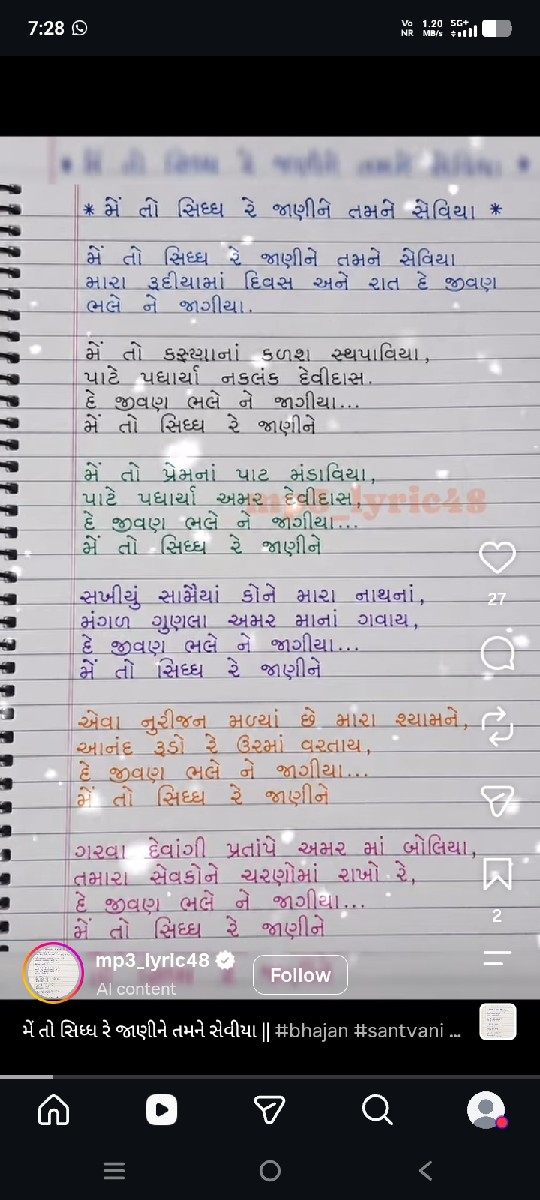 7:28
Vo NR 1.20 MB/s 5G+
* મેં તો સિધ્ધ રે જાણીને તમને સેવિયા *
મેં તો સિધ્ધ રે જાણીને તમને સેવિયા
મારા રૂદીયામાં દિવસ અને રાત હે જીવણ
ભલે ને જાગીયા.
મેં તો કરુણાનાં કળશ સ્થપાવિયા,
પાટે પધાર્યા નકલંક દેવીદાસ.
હે જીવણ ભલે ને જાગીયા...
મેં તો સિધ્ધ રે જાણીને
મેં તો પ્રેમનાં પાટ મંડાવિયા,
પાટે પધાર્યા અમર દેવીદાસ,
mp3_lyric48
હે જીવણ ભલે ને જાગીયા...
મેં તો સિધ્ધ રે જાણીને
સખીયું સામૈયાં કોને મારા નાથનાં,
27
મંગળ ગુણલા અમર માનાં ગવાય,
હે જીવણ ભલે ને જાગીયા...
મેં તો સિધ્ધ રે જાણીને
એવા નુરીજન મળ્યાં છે મારા શ્યામને,
આનંદ રૂડો રે ઉરમાં વરતાય,
હે જીવણ ભલે ને જાગીયા...
મેં તો સિધ્ધ રે જાણીને
ગરવા દેવાંગી પ્રતાંપે અમર માં બોલિયા,
તમારા સેવકોને ચરણોમાં રાખો રે,
હે જીવણ ભલે ને જાગીયા...
2
મેં તો સિધ્ધ રે જાણીને
mp3_lyric48
Follow
AI content
મેં તો સિધ્ધ રે જાણીને તમને સેવીયા || #bhajan #santvani ...